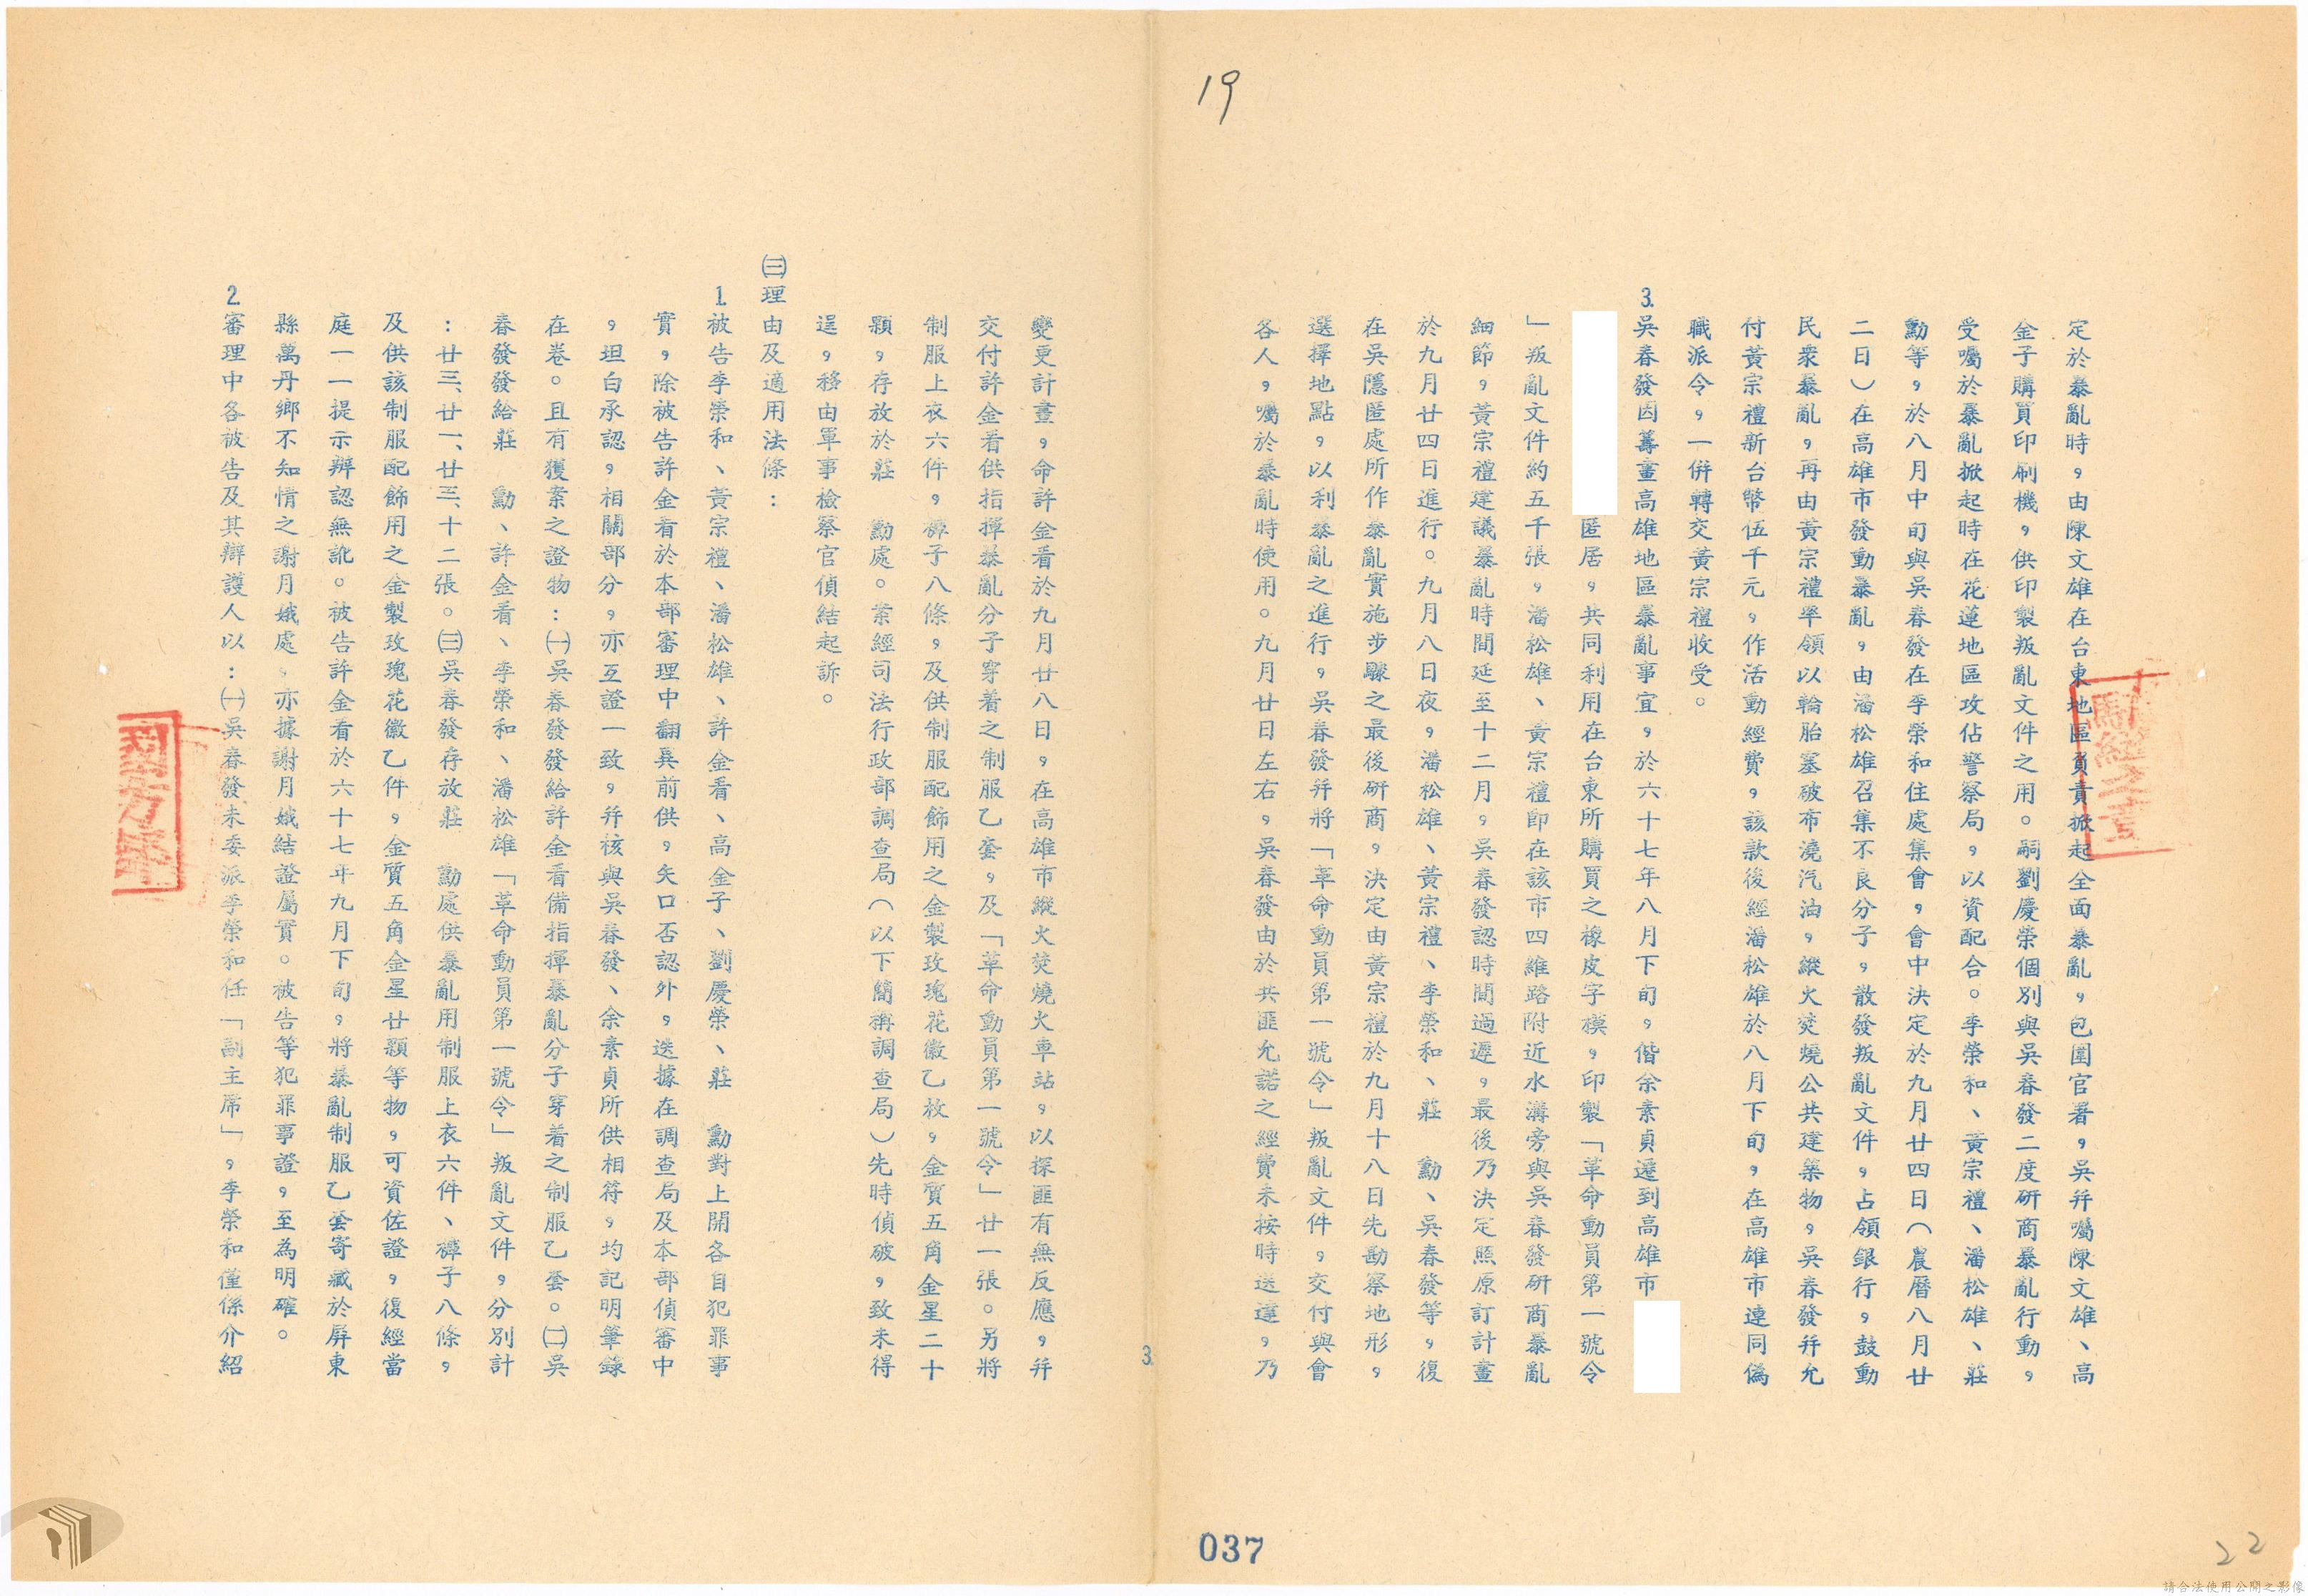 19
定於暴亂時，由陳文雄在台東地區負責掀起全面暴亂，包圍官署，吳幷囑陳文雄、高
金子購買印刷機，供印製叛亂文件之用。嗣劉慶榮個別與吳春發二度研商暴亂行動，
受囑於暴亂掀起時在花蓮地區攻佔警察局，以資配合。李榮和、黃宗禮、潘松雄、莊
勳等，於八月中旬與吳春發在李榮和住處集會，會中決定於九月廿四日（農曆八月廿
二日）在高雄市發動暴亂，由潘松雄召集不良分子，散發叛亂文件，占領銀行，鼓動
民衆暴亂，再由黃宗禮率領以輪胎塞破布澆汽油，縱火焚燒公共建築物，吳春發幷允
付黃宗禮新台幣伍千元，作活動經費，該款後經潘松雄於八月下旬，在高雄市連同偽
職派令，一併轉交黃宗禮收受。
3.吳春發因籌畫高雄地區暴亂事宜，於六十七年八月下旬，偕余素貞遷到高雄市
匿居，共同利用在台東所購買之橡皮字模，印製「革命動員第一號令
」叛亂文件約五千張，潘松雄、黃宗禮即在該市四維路附近水溝旁與吳春發研商暴亂
細節，黃宗禮建議暴亂時間延至十二月，吳春發認時間過遲，最後乃決定照原訂計畫
於九月廿四日進行。九月八日夜，潘松雄、黃宗禮、李榮和、莊　勳、吳春發等，復
在吳隱匿處所作暴亂實施步驟之最後研商，決定由黃宗禮於九月十八日先勘察地形，
選擇地點，以利暴亂之進行，吳春發幷將「革命動員第一號令」叛亂文件，交付與會
各人，囑於暴亂時使用。九月廿日左右，吳春發由於共匪允諾之經費未按時送達，乃
037
22
3.
變更計畫，命許金看於九月廿八日，在高雄市縱火焚燒火車站，以探匪有無反應，幷
交付許金看供指揮暴亂分子穿着之制服乙套，及「革命動員第一號令」廿一張。另將
制服上衣六件，褲子八條，及供制服配飾用之金製玫瑰花徽乙枚，金質五角金星二十
顆，存放於莊　勳處。案經司法行政部調查局（以下簡稱調查局）先時偵破，致未得
逞，移由軍事檢察官偵結起訴。
㈢理由及適用法條：
1.被告李榮和、黃宗禮、潘松雄、許金看、高金子、劉慶榮、莊　勳對上開各自犯罪事
實，除被告許金看於本部審理中翻異前供，矢口否認外，迭據在調查局及本部偵審中
，坦白承認，相關部分，亦互證一致，幷核與吳春發、余素貞所供相符，均記明筆錄
在卷。且有獲案之證物：㈠吳春發發給許金看備指揮暴亂分子穿着之制服乙套。㈡吳
春發發給莊　勳、許金看、李榮和、潘松雄「革命動員第一號令」叛亂文件，分別計
：廿三、廿一、廿三、十二張。㈢吳春發存放莊　勳處供暴亂用制服上衣六件、褲子八條，
及供該制服配飾用之金製玫瑰花徽乙件，金質五角金星廿顆等物，可資佐證，復經當
庭一一提示辨認無訛。被告許金看於六十七年九月下旬，將暴亂制服乙套寄藏於屏東
縣萬丹鄉不知情之謝月娥處，亦據謝月娥結證屬實。被告等犯罪事證，至為明確。
2.審理中各被告及其辯護人以：㈠吳春發未委派李榮和任「副主席」，李榮和僅係介紹
請合法使用公開之影像